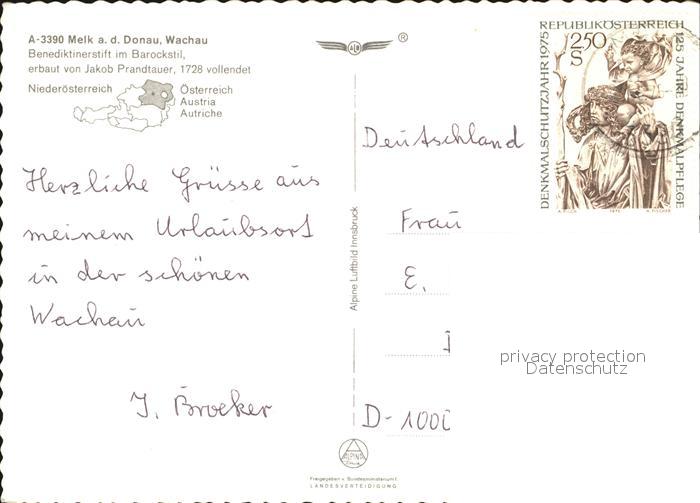 A-3390 Melk a. d. Donau, Wachau
Benediktinerstift im Barockstil,
erbaut von Jakob Prandtauer, 1728 vollendet
Niederösterreich
Österreich
Austria
Autriche
Herzliche Grüsse aus
meinem Urlaubsort
in der schönen
Wachau
J. Brocker
Alpine Luftbild Innsbruck
®
REPUBLIK ÖSTERREICH
DENKMALSCHUTZJAHR 1975
125 JAHRE DENKMALPFLEGE
2.50
S
1975
A. FISCHER
Deutschland
Frau
E.
D-1000
privacy protection
Datenschutz
ALPINA
Freigegeben v. Bundesministerium f.
LANDESVERTEIDIGUNG